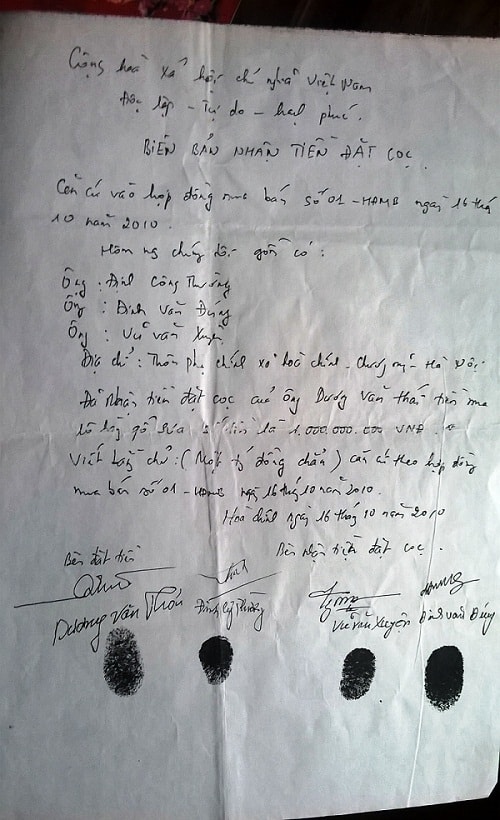 Cộng hoà xã hội chủ nghĩa Việt Nam
Độc lập - Tự do - hạnh phúc.
BIÊN BẢN NHẬN TIỀN ĐẶT CỌC
Căn cứ vào hợp đồng mua bán số 01 - HĐMB ngày 16 tháng
10 năm 2010.
Hôm nay chúng tôi gồm có:
Ông : Đinh Công Thường
Ông : Đinh Văn Đúng
Ông : Vũ Văn Xuyên
Địa chỉ : Thôn Phụ chính xã hoà chính - chương mỹ - Hà Nội
Đã nhận tiền đặt cọc của ông Dương Văn Thái tiền mua
lô hàng gỗ sưa số tiền là 1.000.000.000 VNĐ.
Viết bằng chữ : (Một tỷ đồng chẵn) căn cứ theo hợp đồng
mua bán số 01 - HĐMB ngày 16 tháng 10 năm 2010.
Hoà chính ngày 16 tháng 10 năm 2010
Bên đặt tiền Bên nhận tiền đặt cọc.
Dương Văn Đinh Vũ Văn Xuyên Đinh Văn Đúng